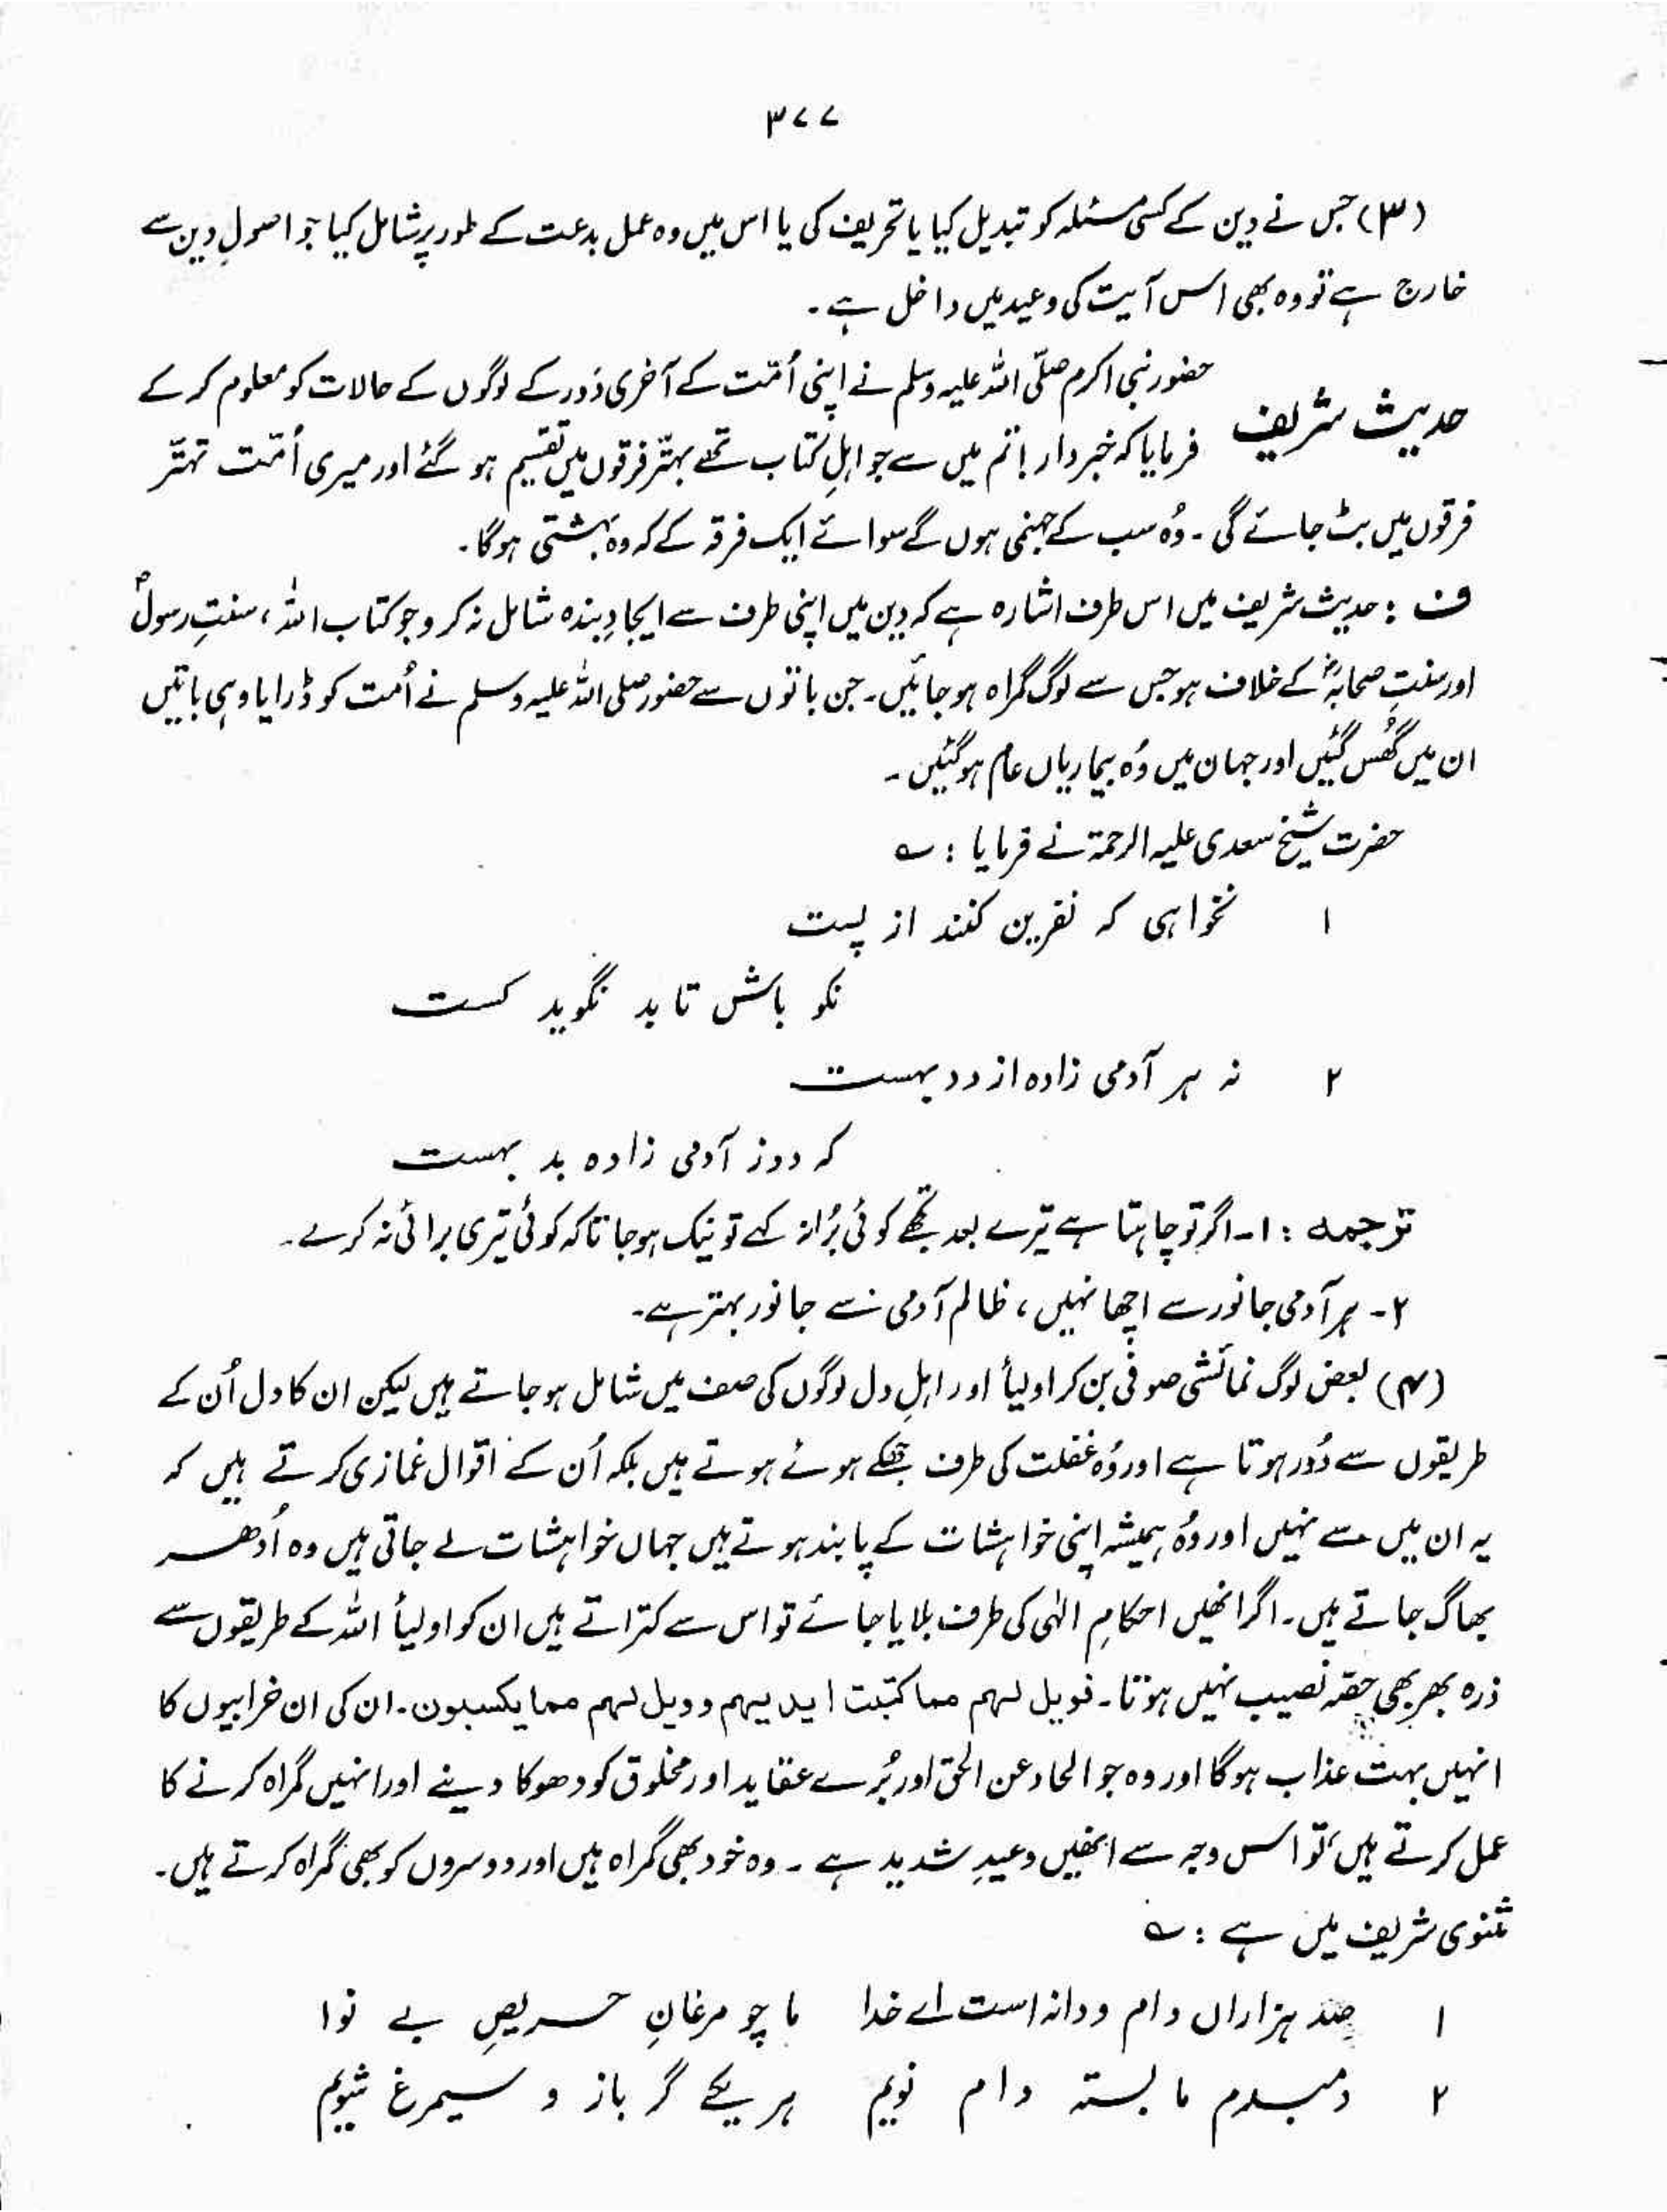 ۳۷۷
(۳) جس نے دین کے کسی مسئلہ کو تبدیل کیا یا تحریف کی یا اس میں وہ عمل بدعت کے طور پر شامل کیا جو اصولِ دین سے
خارج ہے تو وہ بھی اس آیت کی وعید میں داخل ہے۔
حضور نبی اکرم صلّی اللہ علیہ وسلم نے اپنی اُمّت کے آخری دَور کے لوگوں کے حالات کو معلوم کر کے
حدیث شریف فرمایا کہ خبردار! تم میں سے جو اہلِ کتاب تھے بہتّر فرقوں میں تقسیم ہو گئے اور میری اُمّت تہتّر
فرقوں میں بٹ جائے گی۔ وُہ سب کے جہنمی ہوں گے سوائے ایک فرقہ کے کہ وہ بہشتی ہوگا۔
ف : حدیث شریف میں اس طرف اشارہ ہے کہ دین میں اپنی طرف سے ایجادِ بندہ شامل نہ کرو جو کتاب اللہ، سنتِ رسولؐ
اور سنتِ صحابہؓ کے خلاف ہو جس سے لوگ گمراہ ہو جائیں۔ جن باتوں سے حضور صلی اللہ علیہ وسلم نے اُمت کو ڈرایا وہی باتیں
ان میں گھُس گئیں اور جہان میں وُہ بیماریاں عام ہوگئیں۔
حضرت شیخ سعدی علیہ الرحمۃ نے فرمایا : ؎
۱ نخواہی کہ نفرین کنند از پست
نکو باش تا بد نگوید کست
۲ نہ ہر آدمی زادہ از دد بہست
کہ دد ز آدمی زادہ بد بہست
ترجمہ : ۱۔ اگر تو چاہتا ہے تیرے بعد تجھے کوئی بُرا نہ کہے تو نیک ہو جا تاکہ کوئی تیری برائی نہ کرے۔
۲۔ ہر آدمی جانور سے اچھا نہیں، ظالم آدمی سے جانور بہتر ہے۔
(۴) بعض لوگ نمائشی صوفی بن کر اولیأ اور اہلِ دل لوگوں کی صف میں شامل ہو جاتے ہیں لیکن ان کا دل اُن کے
طریقوں سے دُور ہوتا ہے اور وُہ غفلت کی طرف جھکے ہوئے ہوتے ہیں بلکہ اُن کے اقوال غمازی کرتے ہیں کہ
یہ ان میں سے نہیں اور وُہ ہمیشہ اپنی خواہشات کے پابند ہوتے ہیں جہاں خواہشات لے جاتی ہیں وہ اُدھر
بھاگ جاتے ہیں۔ اگر انھیں احکامِ الٰہی کی طرف بلایا جائے تو اس سے کتراتے ہیں ان کو اولیأ اللہ کے طریقوں سے
ذرہ بھر بھی حصّہ نصیب نہیں ہوتا۔ فویل لہم مما کتبت ایدیہم وویل لہم مما یکسبون۔ ان کی ان خرابیوں کا
انہیں بہت عذاب ہوگا اور وہ جو الحاد عن الحق اور بُرے عقاید اور مخلوق کو دھوکا دینے اور انہیں گمراہ کرنے کا
عمل کرتے ہیں تو اس وجہ سے انھیں وعیدِ شدید ہے۔ وہ خود بھی گمراہ ہیں اور دوسروں کو بھی گمراہ کرتے ہیں۔
مثنوی شریف میں ہے : ؎
۱ صد ہزاراں دام و دانہ است اے خدا ما چو مرغانِ حریصِ بے نوا
۲ دمبدم ما بستہ دام نویم ہر یکے گر باز و سیمرغ شویم